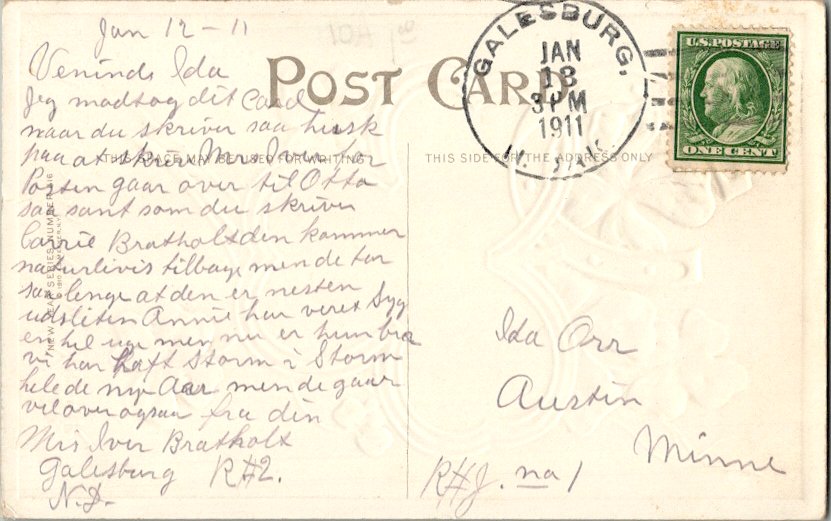 Jan 12-11
Veninde Ida
Jeg modtog dit Card
naar du skriver saa husk
paa at skrive Mrs Iver for
Posten gaar over til Otto
saa sant som du skriver
Carrie Bratholt den kommer
naturlivis tilbage men de tar
saa lenge at den er nesten
udsliten Annie har veret Syg
en hel uge men nu er hun bra
vi har haft Storm i Storm
hele de nye Aar men de gaar
vel over ogsaa fra din
Mrs Iver Bratholt
Galesburg R#2.
N.D.
POST CARD
THIS SPACE MAY BE USED FOR WRITING
THIS SIDE FOR THE ADDRESS ONLY
NEW YEAR SERIES NUMBER
GALESBURG,
JAN
13
3 PM
1911
N. DAK.
U.S. POSTAGE
ONE CENT
Ida Orr
Austin
Minne
no 1